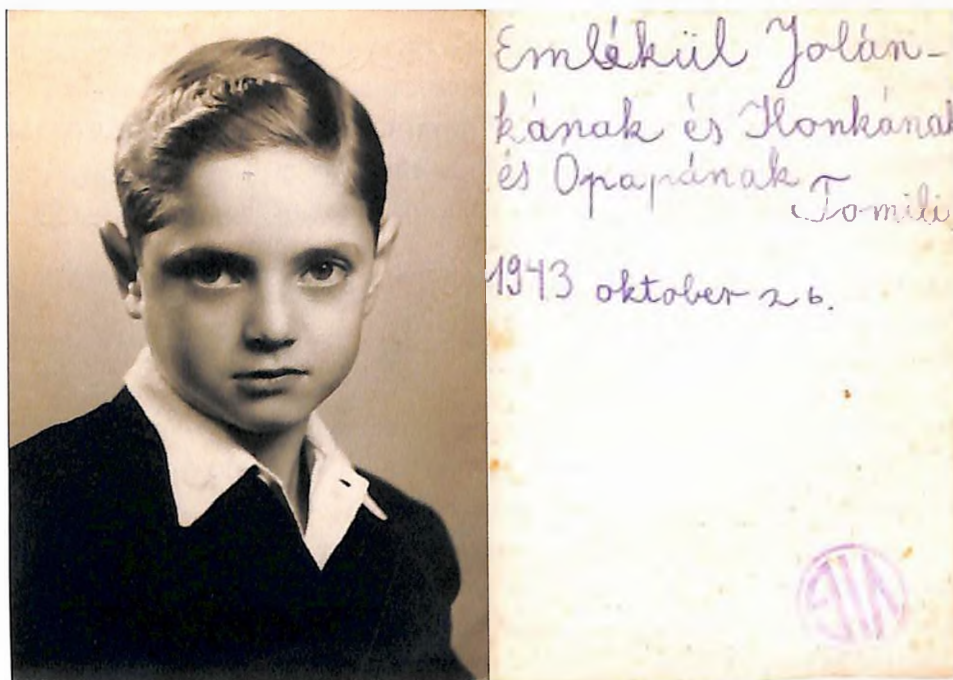 Emlékül Jolán-
kának és Ilonkának
és Opapának
Tomili
1943 oktober 26.